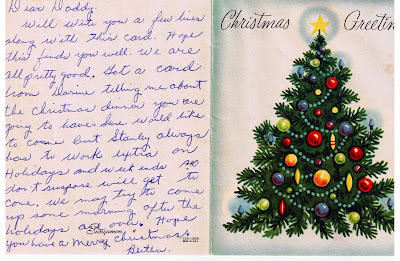 Dear Daddy.
Will write you a few lines
along with this card. Hope
this finds you well. We are
all pretty good. Got a card
from Darine telling me about
the Christmas dinner you are
going to have. Sure would like
to come but Stanley always
has to work extra on
Holidays and weekends so
don't suspose we'll get to
come. We may try to come
up some morning after the
holidays are over. Hope
you have a merry Christmas.
Sangamon
Christmas Greetin